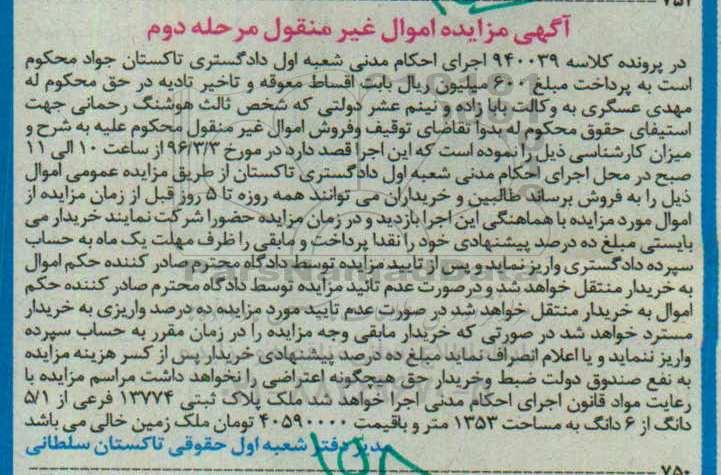 ۷۵۲
آگهی مزایده اموال غیر منقول مرحله دوم
در پرونده کلاسه ۹۴۰۰۳۹ اجرای احکام مدنی شعبه اول دادگستری تاکستان جواد محکوم
است به پرداخت مبلغ ۶۰۰ میلیون ریال بابت اقساط معوقه و تاخیر تادیه در حق محکوم له
مهدی عسگری به وکالت بابا زاده و نینم عشر دولتی که شخص ثالث هوشنگ رحمانی جهت
استیفای حقوق محکوم له بدوا تقاضای توقیف وفروش اموال غیر منقول محکوم علیه به شرح و
میزان کارشناسی ذیل را نموده است که این اجرا قصد دارد در مورخ ۹۶/۳/۳ از ساعت ۱۰ الی ۱۱
صبح در محل اجرای احکام مدنی شعبه اول دادگستری تاکستان از طریق مزایده عمومی اموال
ذیل را به فروش برساند طالبین و خریداران می توانند همه روزه تا ۵ روز قبل از زمان مزایده از
اموال مورد مزایده با هماهنگی این اجرا بازدید و در زمان مزایده حضورا شرکت نمایند خریدار می
بایستی مبلغ ده درصد پیشنهادی خود را نقدا پرداخت و مابقی را ظرف مهلت یک ماه به حساب
سپرده دادگستری واریز نماید و پس از تایید مزایده توسط دادگاه محترم صادر کننده حکم اموال
به خریدار منتقل خواهد شد و درصورت عدم تائید مزایده توسط دادگاه محترم صادر کننده حکم
اموال به خریدار منتقل خواهد شد در صورت عدم تایید مورد مزایده ده درصد واریزی به خریدار
مسترد خواهد شد در صورتی که خریدار مابقی وجه مزایده را در زمان مقرر به حساب سپرده
واریز ننماید و یا اعلام انصراف نماید مبلغ ده درصد پیشنهادی خریدار پس از کسر هزینه مزایده
به نفع صندوق دولت ضبط وخریدار حق هیچگونه اعتراضی را نخواهد داشت مراسم مزایده با
رعایت مواد قانون اجرای احکام مدنی اجرا خواهد شد ملک پلاک ثبتی ۱۳۷۷۴ فرعی از ۵/۱
دانگ از ۶ دانگ به مساحت ۱۳۵۳ متر و باقیمت ۴۰۵۹۰۰۰۰ تومان ملک زمین خالی می باشد
مدیر دفتر شعبه اول حقوقی تاکستان سلطانی
۷۵۰